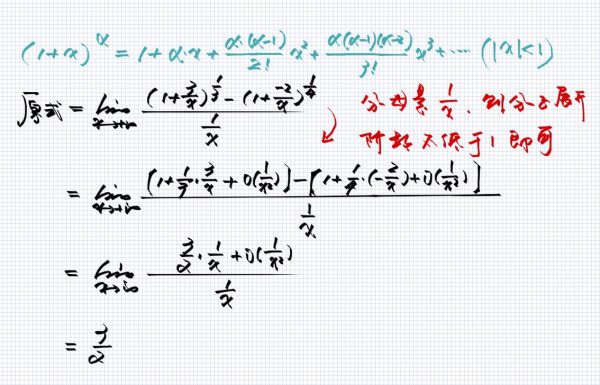 (1+x)^α = 1+α·x+\frac{α·(α-1)}{2!}x²+\frac{α(α-1)(α-2)}{3!}x³+⋯ (|x|<1)
原式 = \lim_{x→+∞} \frac{(1+\frac{3}{x})^{\frac{1}{3}}-(1+\frac{-2}{x})^{\frac{1}{4}}}{\frac{1}{x}}
分母是\frac{1}{x},则分子展开
阶都不低于1即可
= \lim_{x→+∞} \frac{[1+\frac{1}{3}·\frac{3}{x}+o(\frac{1}{x²})]-[1+\frac{1}{4}·(-\frac{2}{x})+o(\frac{1}{x²})]}{\frac{1}{x}}
= \lim_{x→+∞} \frac{\frac{3}{2}·\frac{1}{x}+o(\frac{1}{x²})}{\frac{1}{x}}
= \frac{3}{2}